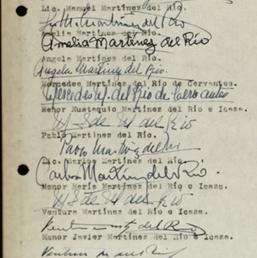 Lic. Manuel Martinez del Rio.
Amelia Martinez del Rio.
Amelia Martinez del Río
Angela Martinez del Rio.
Angela Martinez del Rio.
Mercedes Martinez del Rio de Cervantes.
Mercedes M. del Rio de Cervantes
Menor Eustaquio Martinez del Rio e Icaza.
del Rio
Pablo Martinez del Rio.
Pablo Martinez del Rio
Lic. Carlos Martinez del Rio.
Carlos Martinez del Rio.
Menor Maria Martinez del Rio e Icaza.
del Rio
Ventura Martinez del Rio e Icaza.
Ventura M. del Rio
Menor Javier Martinez del Rio e Icaza.
Ventura